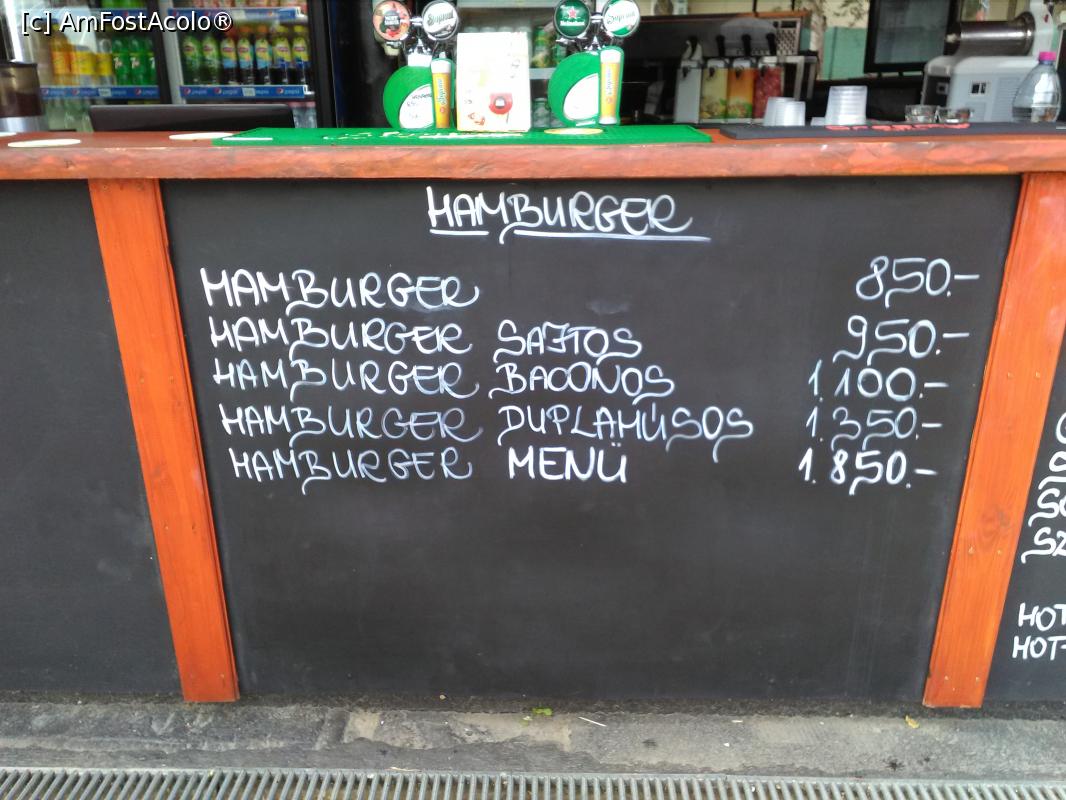 [c] AmFostAcolo®
Heineken
pepsi pepsi pepsi
HAMBURGER
HAMBURGER 850.-
HAMBURGER SAJTOS 950.-
HAMBURGER BACONOS 1.100.-
HAMBURGER DUPLAHÚSOS 1.350.-
HAMBURGER MENÜ 1.850.-
SZ
HOT
HOT-